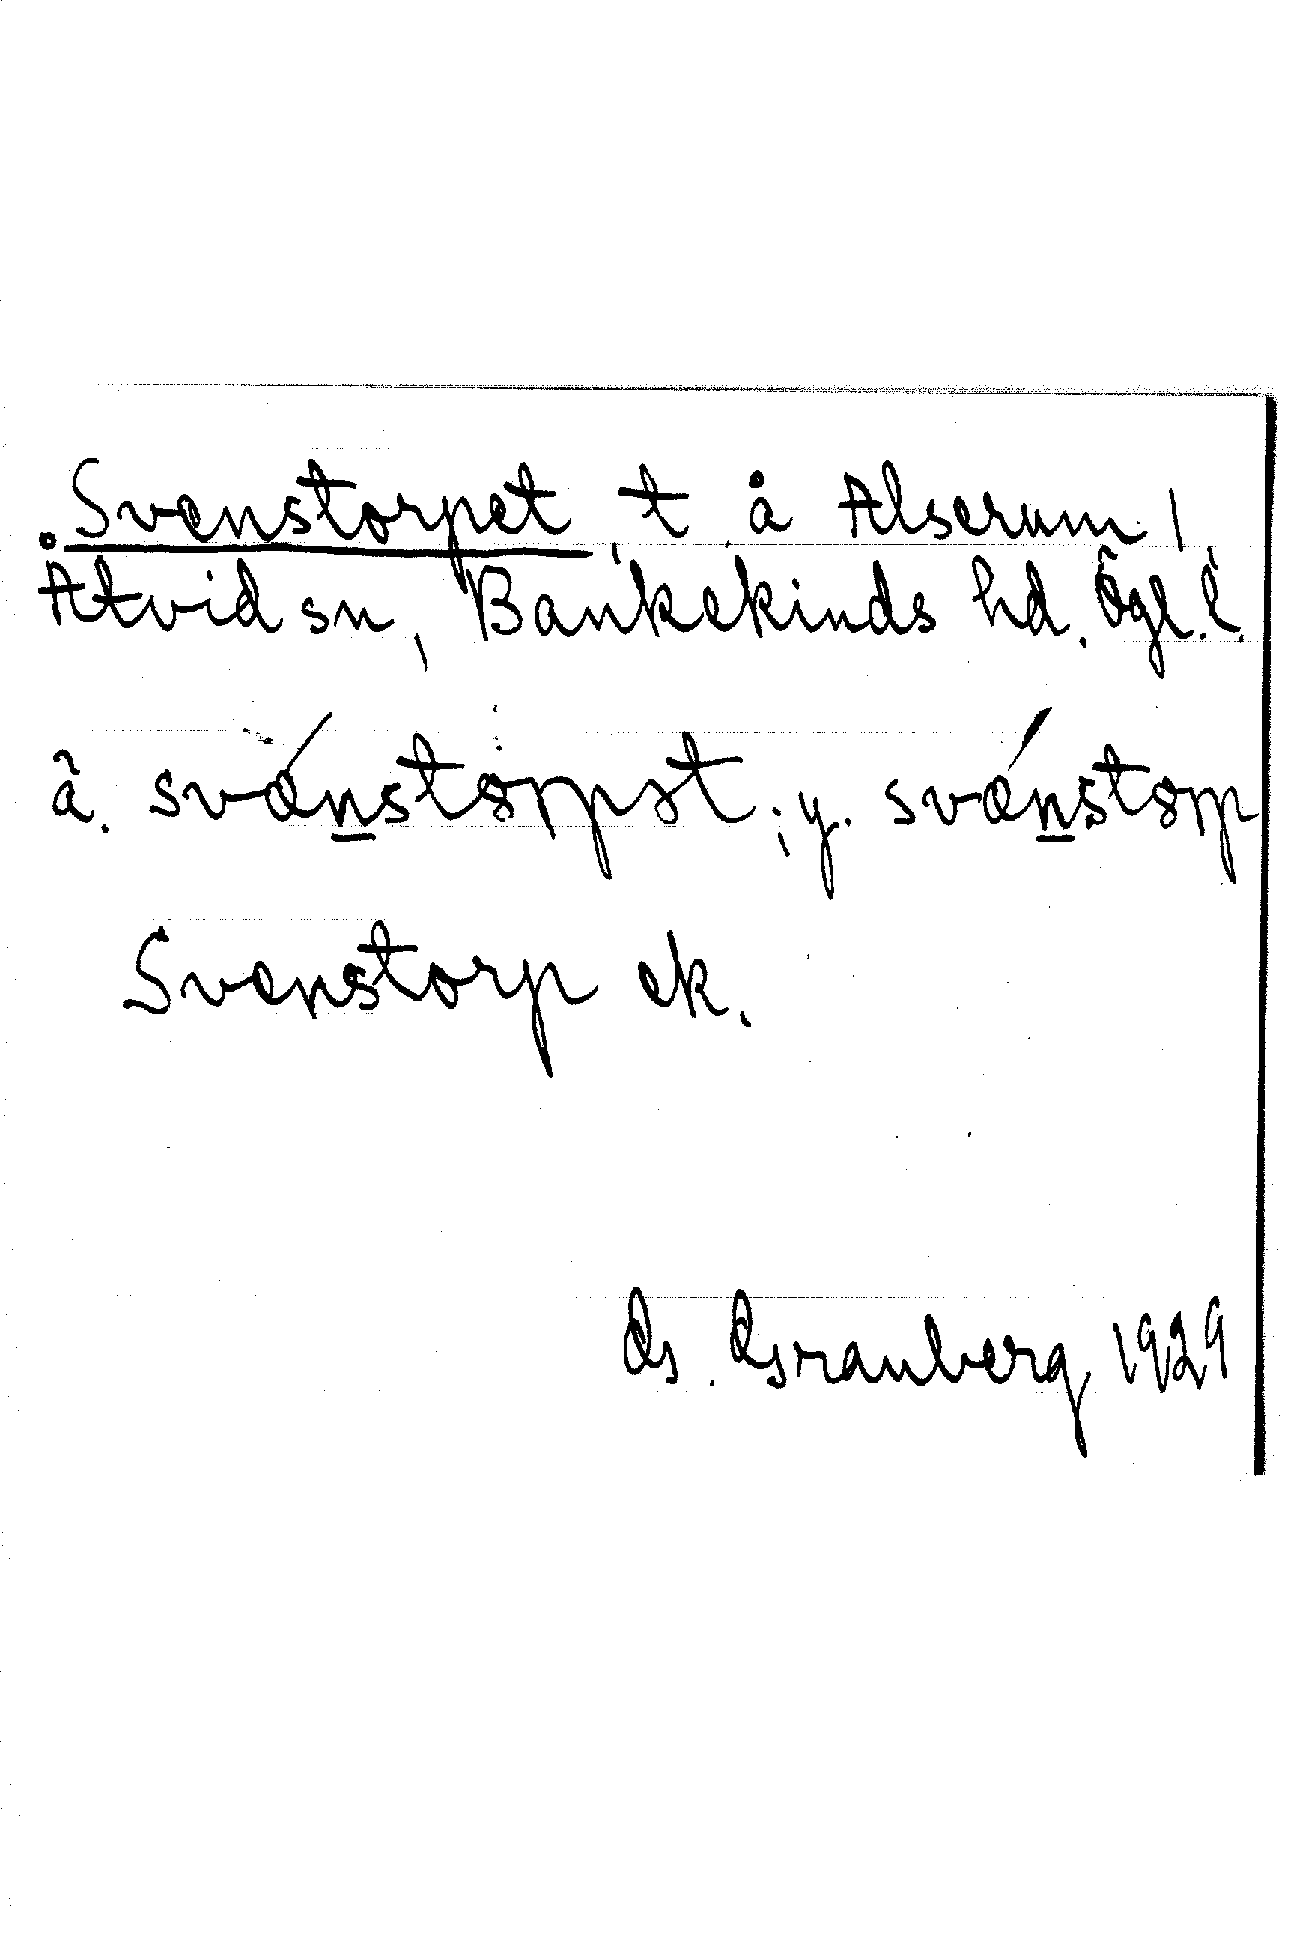 Svenstorpet, t å Alserum,
Åtvid sn, Bankekinds hd. Ögl. l.
ä. sván̲störpət; y. sván̲störp
Svenstorp ek.
Gs. Granberg 1929